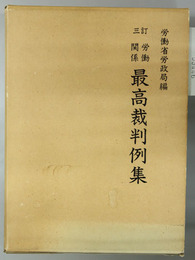 労働省労政局編
三訂
労働関係
最高裁判例集